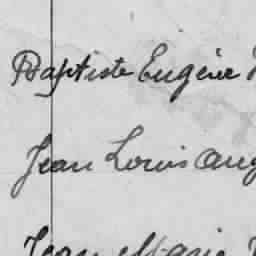 Baptiste Eugène
Jean Louis Aug
Jean Marie